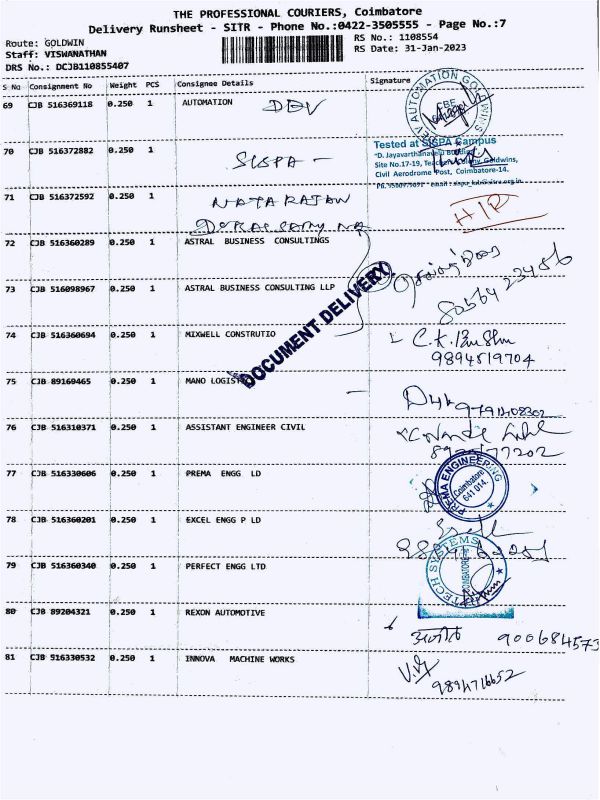 THE PROFESSIONAL COURIERS, Coimbatore
Delivery Runsheet - SITR - Phone No.:0422-3505555 - Page No.:7
Route: GOLDWIN
RS No.: 1108554
Staff: VISWANATHAN
RS Date: 31-Jan-2023
DRS No.: DCJB110855407
S No Consignment No Weight PCS Consignee Details Signature
69 CJB 516369118 0.250 1 AUTOMATION DEV
AUTOMATION GOLDWINS
70 CJB 516372882 0.250 1 SISPA -
Tested at SISPA Campus
"D. Jayavarthanavelu Building,
Site No.17-19, Teachers Colony, Goldwins,
Civil Aerodrome Post, Coimbatore-14.
71 CJB 516372592 0.250 1 NATARAJAN
72 CJB 516360289 0.250 1 ASTRAL BUSINESS CONSULTINGS
73 CJB 516098967 0.250 1 ASTRAL BUSINESS CONSULTING LLP
DOCUMENT DELIVERY
74 CJB 516360694 0.250 1 MIXWELL CONSTRUTIO
9894519704
75 CJB 89169465 0.250 1 MANO LOGIST
76 CJB 516310371 0.250 1 ASSISTANT ENGINEER CIVIL
77 CJB 516330606 0.250 1 PREMA ENGG LD
PREMA ENGINEERING
Coimbatore
641 014.
78 CJB 516360201 0.250 1 EXCEL ENGG P LD
79 CJB 516360340 0.250 1 PERFECT ENGG LTD
TECH SYSTEMS
80 CJB 89204321 0.250 1 REXON AUTOMOTIVE
900684573
81 CJB 516330532 0.250 1 INNOVA MACHINE WORKS
9894716652